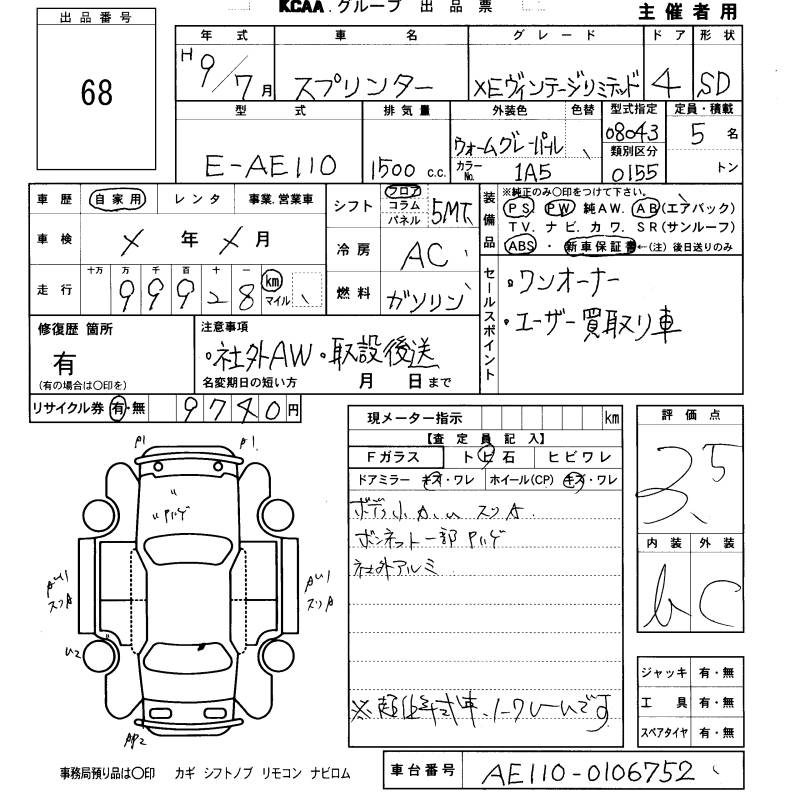 KCAA.グループ 出品票
主催者用
出品番号
68
年式 車名 グレード ドア 形状
H 9/7月 スプリンター XEヴィンテージリミテッド 4 SD
型式 排気量 外装色 色替 型式指定 定員・積載
E-AE110 1500 c.c. ウォームグレーパール 08043 5名
カラーNo. 1A5 類別区分 0155 トン
車歴 自家用 レンタ 事業.営業車
シフト フロア コラム パネル 5MT
装備品 ※純正のみ○印をつけて下さい。
PS PW 純AW. AB(エアバック)
TV. ナビ. カワ. SR(サンルーフ)
ABS・新車保証書←(注)後日送りのみ
車検 ✓年 ✓月
冷房 AC
走行 十万 万 千 百 十 一
99928 km マイル
燃料 ガソリン
セールスポイント
・ワンオーナー
・ユーザー買取り車
修復歴 箇所
有
(有の場合は○印を)
注意事項
・社外AW・取説後送
名変期日の短い方 月 日まで
リサイクル券 有・無 9740円
現メーター指示 km
【査定員記入】
Fガラス トビ石 ヒビワレ
ドアミラー キズ・ワレ ホイール(CP) キズ・ワレ
ボンネット一部Pハゲ
社外アルミ
評価点
3.5
内装 外装
b C
P1 P1
Pハゲ
スリA スリA
U2
ジャッキ 有・無
工具 有・無
スペアタイヤ 有・無
事務局預り品は○印 カギ シフトノブ リモコン ナビロム
車台番号 AE110-0106752